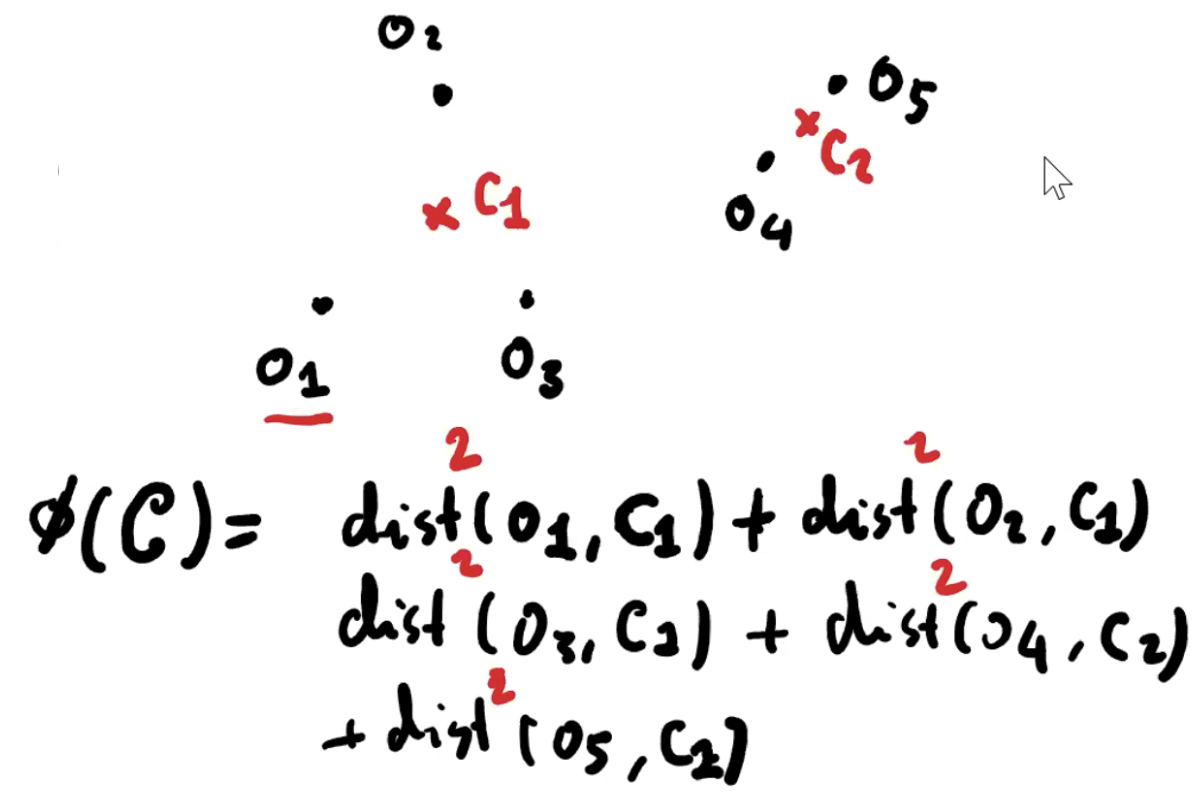 O2
O5
C2
C1
O4
O1
O3
ϕ(C)= dist²(O1, C1) + dist²(O2, C1)
dist²(O3, C1) + dist²(O4, C2)
+ dist²(O5, C2)